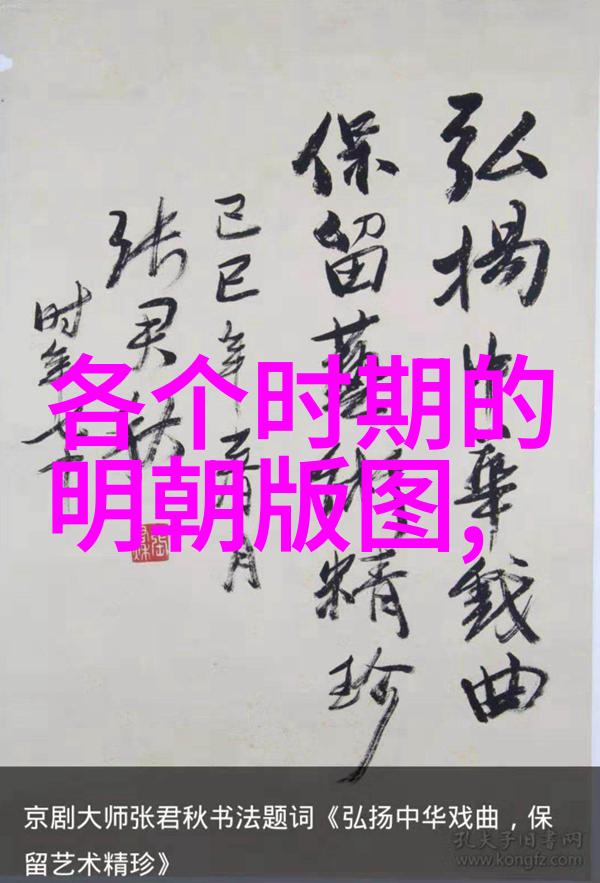 弘揚中華戲曲
保留藝術精珍
己巳年月
张君秋
时年七十
各个时期的
明朝版图,
京剧大师张君秋书法题词《弘扬中华戏曲，保
留艺术精珍》
孔夫子旧书网
www.kongfz.com